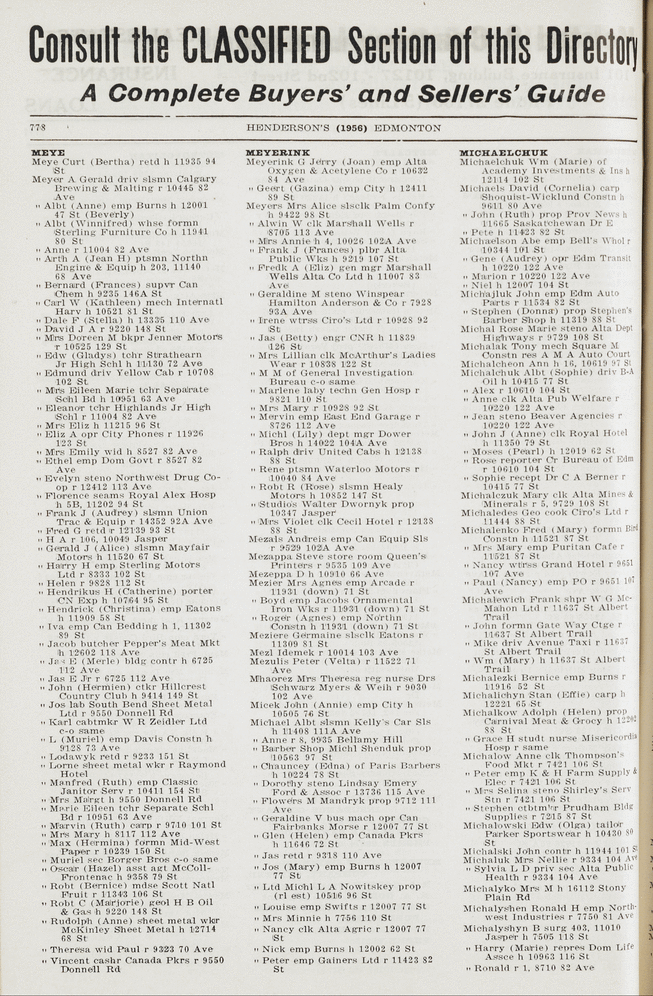 Consult the CLASSIFIED Section of this Directory
A Complete Buyers' and Sellers' Guide
778
HENDERSON'S (1956) EDMONTON
MEYE
Meye Curt (Bertha) retd h 11935 94
St
Meyer A Gerald driv slsmn Calgary
Brewing & Malting r 10445 82
Ave
" Albt (Anne) emp Burns h 12001
47 St (Beverly)
" Albt (Winnifred) whse formn
Sterling Furniture Co h 11941
80 St
" Anne r 11004 82 Ave
" Arth A (Jean H) ptsmn Northn
Engine & Equip h 203, 11140
68 Ave
" Bernard (Frances) supvr Can
Chem h 9235 146A St
" Carl W (Kathleen) mech Internatl
Harv h 10521 81 St
" Dale F (Stella) h 13335 110 Ave
" David J A r 9220 148 St
" Mrs Doreen M bkpr Jenner Motors
r 10525 129 St
" Edw (Gladys) tchr Strathearn
Jr High Schl h 11130 72 Ave
" Edmund driv Yellow Cab r 10708
102 St
" Mrs Eileen Marie tchr Separate
Schl Bd h 10951 63 Ave
" Eleanor tchr Highlands Jr High
Schl r 11004 82 Ave
" Mrs Eliz h 11215 96 St
" Eliz A opr City Phones r 11926
123 St
" Mrs Emily wid h 8527 82 Ave
" Ethel emp Dom Govt r 8527 82
Ave
" Evelyn steno Northwest Drug Co-
op r 12412 113 Ave
" Florence seams Royal Alex Hosp
h 5B, 11202 94 St
" Frank J (Audrey) slsmn Union
Trac & Equip r 14352 92A Ave
" Fred G retd r 12139 93 St
" H A r 106, 10049 Jasper
" Gerald J (Alice) slsmn Mayfair
Motors h 11520 67 St
" Harry H emp Sterling Motors
Ltd r 8333 102 St
" Helen r 9828 112 St
" Hendrikus H (Catherine) porter
CN Exp h 10764 95 St
" Hendrick (Christina) emp Eatons
h 11909 58 St
" Iva emp Can Bedding h 1, 11302
89 St
" Jacob butcher Pepper's Meat Mkt
h 12602 118 Ave
" Jas E (Merle) bldg contr h 6725
112 Ave
" Jas E Jr r 6725 112 Ave
" John (Hermien) ctkr Hillcrest
Country Club h 9414 149 St
" Jos lab South Bend Sheet Metal
Ltd r 9550 Donnell Rd
" Karl cabtmkr W R Zeidler Ltd
c-o same
" L (Muriel) emp Davis Constn h
9128 73 Ave
" Lodawyk retd r 9233 151 St
" Lorne sheet metal wkr r Raymond
Hotel
" Manfred (Ruth) emp Classic
Janitor Serv r 10411 154 St
" Mrs Margt h 9550 Donnell Rd
" Marie Eileen tchr Separate Schl
Bd r 10951 63 Ave
" Marvin (Ruth) carp r 9710 101 St
" Mrs Mary h 8117 112 Ave
" Max (Hermina) formn Mid-West
Paper r 10239 150 St
" Muriel sec Borger Bros c-o same
" Oscar (Hazel) asst agt McColl-
Frontenac h 9358 79 St
" Robt (Bernice) mdse Scott Natl
Fruit r 11343 106 St
" Robt C (Marjorie) geol H B Oil
& Gas h 9220 148 St
" Rudolph (Anne) sheet metal wkr
McKinley Sheet Metal h 12714
68 St
" Theresa wid Paul r 9323 70 Ave
" Vincent cashr Canada Pkrs r 9550
Donnell Rd
MEYERINK
Meyerink G Jerry (Joan) emp Alta
Oxygen & Acetylene Co r 10632
84 Ave
" Geert (Gazina) emp City h 12411
89 St
Meyers Mrs Alice slsclk Palm Confy
h 9422 98 St
" Alwin W clk Marshall Wells r
8705 113 Ave
" Mrs Annie h 4, 10026 102A Ave
" Frank J (Frances) plbr Alta
Public Wks h 9219 107 St
" Fredk A (Eliz) gen mgr Marshall
Wells Alta Co Ltd h 11007 83
Ave
" Geraldine M steno Winspear
Hamilton Anderson & Co r 7928
93A Ave
" Irene wtrss Ciro's Ltd r 10928 92
St
" Jas (Betty) engr CNR h 11839
126 St
" Mrs Lillian clk McArthur's Ladies
Wear r 10838 122 St
" M M of General Investigation
Bureau c-o same
" Marlene laby techn Gen Hosp r
9821 110 St
" Mrs Mary r 10928 92 St
" Mervin emp East End Garage r
8726 112 Ave
" Michl (Lily) dept mgr Dower
Bros h 14022 104A Ave
" Ralph driv United Cabs h 12138
88 St
" Rene ptsmn Waterloo Motors r
10040 84 Ave
" Robt R (Rose) slsmn Healy
Motors h 10852 147 St
" Studios Walter Dwornyk prop
10347 Jasper
" Mrs Violet clk Cecil Hotel r 12138
88 St
Mezals Andreis emp Can Equip Sls
r 9529 102A Ave
Mezappa Steve store room Queen's
Printers r 9535 109 Ave
Mezeppa D h 10910 66 Ave
Mezier Mrs Agnes emp Arcade r
11931 (down) 71 St
" Boyd emp Jacobs Ornamental
Iron Wks r 11931 (down) 71 St
" Roger (Agnes) emp Northn
Constn h 11931 (down) 71 St
Meziere Germaine slsclk Eatons r
11309 81 St
Mezl Idemek r 10014 103 Ave
Mezulis Peter (Velta) r 11522 71
Ave
Mhaorez Mrs Theresa reg nurse Drs
Schwarz Myers & Weih r 9030
102 Ave
Micek John (Annie) emp City h
10505 76 St
Michael Albt slsmn Kelly's Car Sls
h 11408 111A Ave
" Anne r 8, 9935 Bellamy Hill
" Barber Shop Michl Shenduk prop
10563 97 St
" Chauncey (Edna) of Paris Barbers
h 10224 78 St
" Dorothy steno Lindsay Emery
Ford & Assoc r 13736 115 Ave
" Flowers M Mandryk prop 9712 111
Ave
" Geraldine V bus mach opr Can
Fairbanks Morse r 12007 77 St
" Glen (Helen) emp Canada Pkrs
h 11646 72 St
" Jas retd r 9318 110 Ave
" Jos (Mary) emp Burns h 12007
77 St
" Ltd Michl L A Nowitskey prop
(rl est) 10516 96 St
" Louise emp Swifts r 12007 77 St
" Mrs Minnie h 7756 110 St
" Nancy clk Alta Agric r 12007 77
St
" Nick emp Burns h 12002 62 St
" Peter emp Gainers Ltd r 11423 82
St
MICHAELCHUK
Michaelchuk Wm (Marie) of
Academy Investments & Ins h
12114 102 St
Michaels David (Cornelia) carp
Shoquist-Wicklund Constn h
9611 80 Ave
" John (Ruth) prop Prov News h
11665 Saskatchewan Dr E
" Pete h 11423 82 St
Michaelson Abe emp Bell's Whol r
10344 101 St
" Gene (Audrey) opr Edm Transit
h 10220 122 Ave
" Marion r 10220 122 Ave
" Niel h 12007 104 St
Michajluk John emp Edm Auto
Parts r 11534 82 St
" Stephen (Donna) prop Stephen's
Barber Shop h 11319 88 St
Michal Rose Marie steno Alta Dept
Highways r 9729 108 St
Michalak Tony mech Square M
Constn res A M A Auto Court
Michalcheon Ann h 16, 10619 97 St
Michalchuk Albt (Sophie) driv B-A
Oil h 10415 77 St
" Alex r 10610 104 St
" Anne clk Alta Pub Welfare r
10220 122 Ave
" Jean steno Beaver Agencies r
10220 122 Ave
" John J (Anne) clk Royal Hotel
h 11350 79 St
" Moses (Pearl) h 12019 62 St
" Rose reporter Cr Bureau of Edm
r 10610 104 St
" Sophie recept Dr C A Berner r
10415 77 St
Michalczuk Mary clk Alta Mines &
Minerals r 5, 9729 108 St
Michaledes Geo cook Ciro's Ltd r
11444 88 St
Michalenko Fred (Mary) formn Bird
Constn h 11521 87 St
" Mrs Mary emp Puritan Cafe r
11521 87 St
" Nancy wtrss Grand Hotel r 9651
107 Ave
" Paul (Nancy) emp PO r 9651 107
Ave
Michalewich Frank shpr W G Mc-
Mahon Ltd r 11637 St Albert
Trail
" John formn Gate Way Ctge r
11637 St Albert Trail
" Mike driv Avenue Taxi r 11637
St Albert Trail
" Wm (Mary) h 11637 St Albert
Trail
Michalezki Bernice emp Burns r
11916 52 St
Michalichyn Stan (Effie) carp h
12221 65 St
Michalkow Adolph (Helen) prop
Carnival Meat & Grocy h 12202
88 St
" Grace H studt nurse Misericordia
Hosp r same
Michalow Anne clk Thompson's
Food Mkt r 7421 106 St
" Peter emp K & H Farm Supply &
Elec r 7421 106 St
" Mrs Selina steno Shirley's Serv
Stn r 7421 106 St
" Stephen Prudham Bldg
Supplies r 7215 87 St
Michalowski Edw (Olga) tailor
Parker Sportswear h 10430 80
St
Michalski John contr h 11944 101 St
Michaluk Mrs Nellie r 9334 104 Ave
" Sylvia L D priv sec Alta Public
Health r 9334 104 Ave
Michalyko Mrs M h 16112 Stony
Plain Rd
Michalyshen Ronald H emp North-
west Industries r 7750 81 Ave
Michalyshyn B surg 403, 11010
Jasper h 7505 118 St
" Harry (Marie) repres Dom Life
Assce h 10963 116 St
" Ronald r 1, 8710 82 Ave